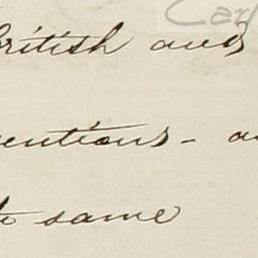 Carl
British and
entions - a
same